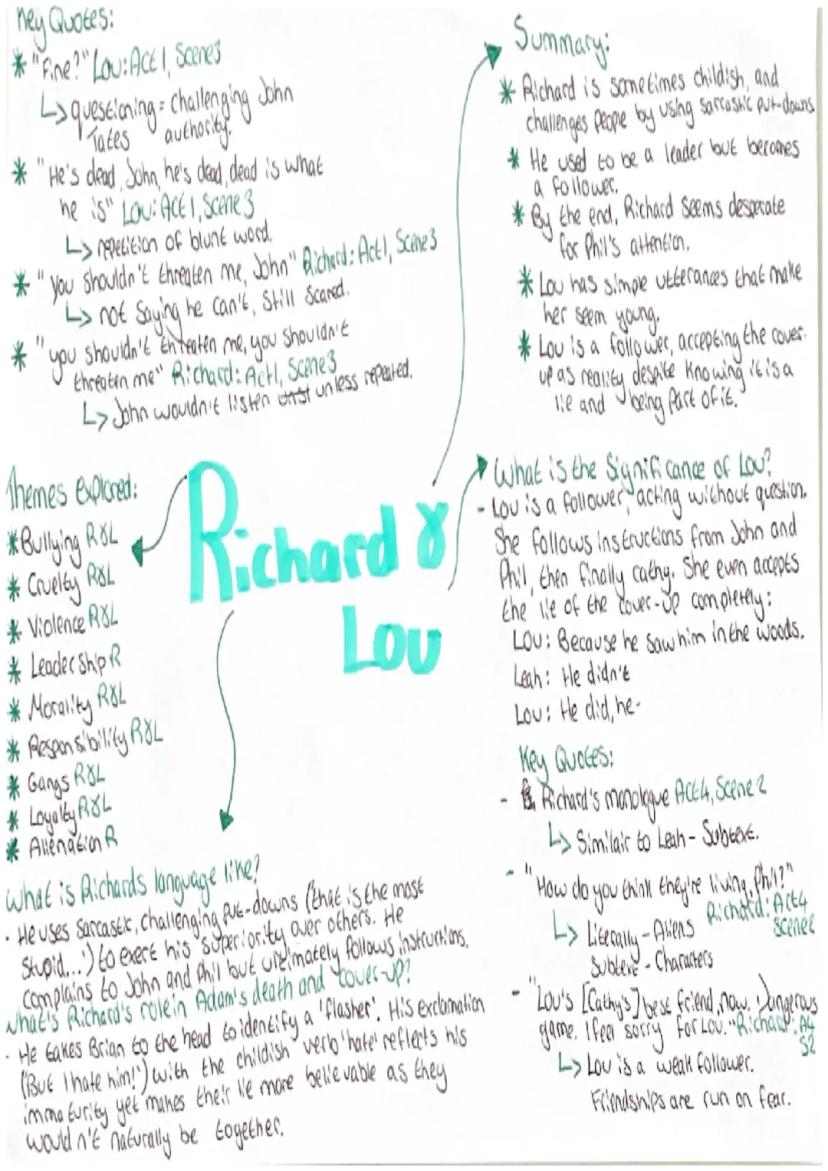 Key Quotes:
* "Fine?" Lou: Act 1, Scene 3
↳ questioning = challenging John
Tates authority.
* "He's dead, John, he's dead, dead is what
he is" Lou: Act 1, Scene 3
↳ repetition of blunt word.
* "you shouldn't threaten me, John" Richard: Act 1, Scene 3
↳ not saying he can't, still scared.
* "you shouldn't threaten me, you shouldn't
threaten me" Richard: Act 1, Scene 3
↳ John wouldn't listen unless repeated.
Summary:
* Richard is sometimes childish, and
challenges people by using sarcastic put-downs
* He used to be a leader but becomes
a follower.
* By the end, Richard seems desperate
for Phil's attention.
* Lou has simple utterances that make
her seem young.
* Lou is a follower, accepting the cover-
up as reality despite knowing it is a
lie and being part of it.
Richard &
Lou
Themes explored:
* Bullying R&L
* Cruelty R&L
* Violence R&L
* Leadership R
* Morality R&L
* Responsibility R&L
* Gangs R&L
* Loyalty R&L
* Alienation R
What is the Significance of Lou?
- Lou is a follower, acting without question.
She follows instructions from John and
Phil, then finally cathy. She even accepts
the lie of the cover-up completely:
Lou: Because he saw him in the woods.
Leah: He didn't
Lou: He did, he-
Key Quotes:
- Richard's monologue Act 4, Scene 2
↳ Similair to Leah - Subtext.
- "How do you think they're living, Phil?"
Richard: Act 4
Scene 2
↳ Literally - Aliens
Subtext - Characters
- "Lou's [Cathy's] best friend, now. Dangerous
game. I feel sorry for Lou." Richard: A4
S2
↳ Lou is a weak follower.
Friendships are run on fear.
What is Richards language like?
· He uses sarcastic, challenging put-downs ('that is the most
stupid...') to exert his superiority over others. He
complains to John and Phil but ultimately follows instructions.
What's Richard's role in Adam's death and cover-up?
· He takes Brian to the head to identify a 'flasher'. His exclamation
('But I hate him!') with the childish verb 'hate' reflects his
immaturity yet makes their lie more believable as they
wouldn't naturally be together.